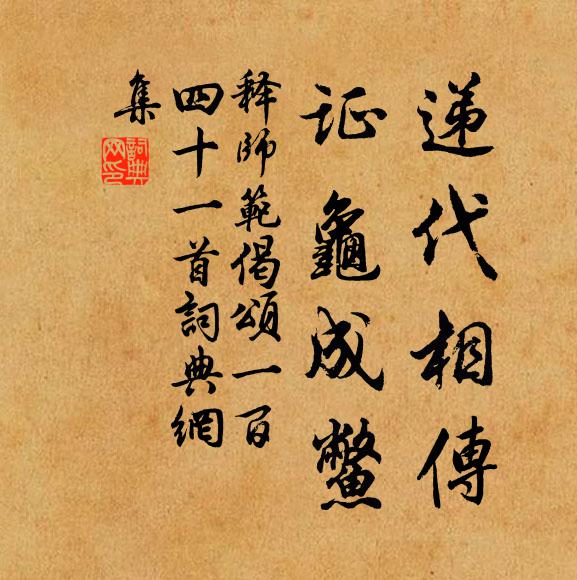 递代相傳
证龜成鱉
释師範偈頌一百
四十一首詞典網
集
詞典
网印